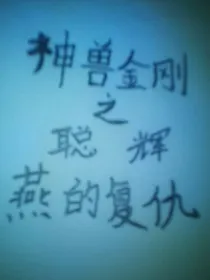 神兽金刚
之
聪辉
燕的复仇